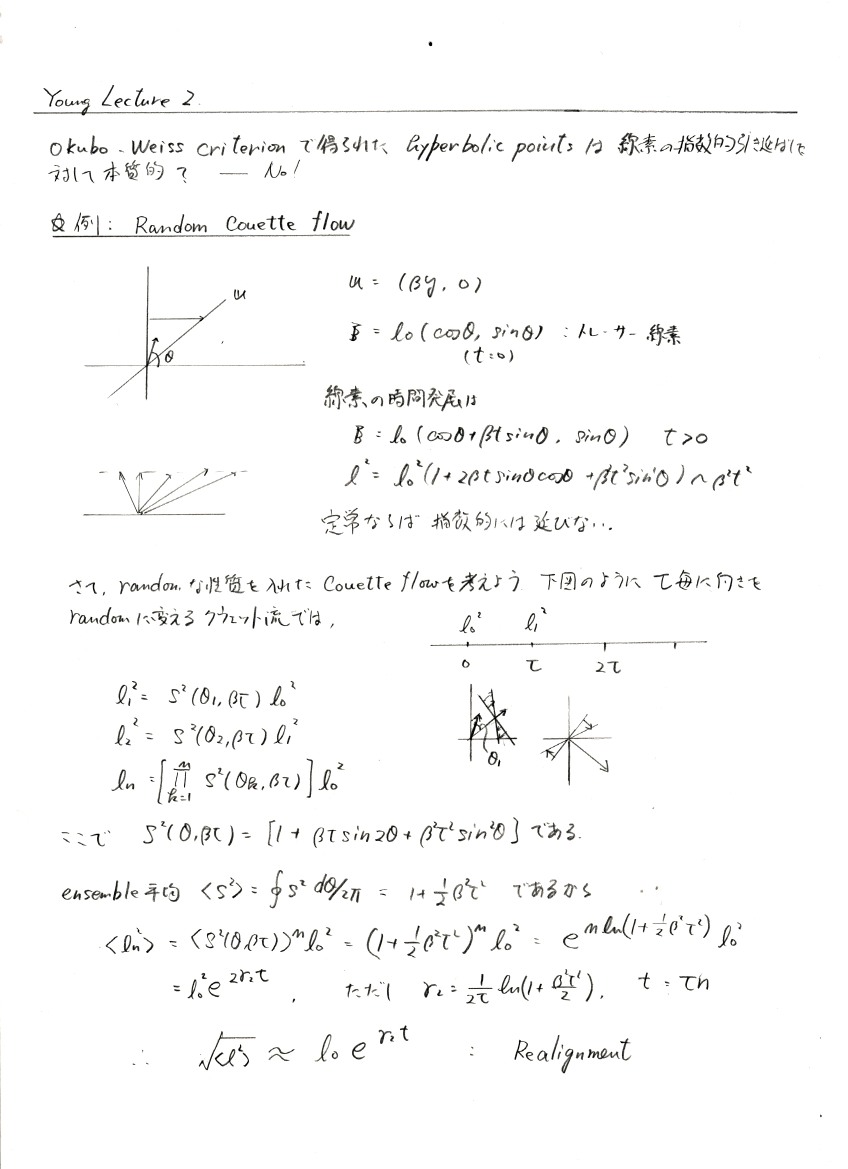 Young Lecture 2.
Okubo-Weiss criterion で得られた hyperbolic points は 線素の指数的引き延ばしに
対して本質的? — No!
例: Random Couette flow
u
θ
u = (βy, 0)
ξ = l₀(cosθ, sinθ) : トレーサー線素
(t=0)
線素の時間発展は
ξ = l₀(cosθ+βt sinθ, sinθ) t>0
l² = l₀²(1+2βt sinθcosθ+β²t²sin²θ) ~ β²t²
定常ならば 指数的には 延びない.
さて, random な性質を入れた Couette flow を考えよう 下図のように τ毎に向きを
random に変える クウェット流では,
l₀² l₁²
0 τ 2τ
θ₁
l₁² = S²(θ₁, βτ) l₀²
l₂² = S²(θ₂, βτ) l₁²
ln = [∏_{k=1}^{n} S²(θk, βτ)] l₀²
ここで S²(θ, βτ) = [1 + βτ sin2θ + β²τ² sin²θ] である.
ensemble 平均 <S²> = ∮S² dθ/2π = 1+½β²τ² であるから
<ln²> = <S²(θ,βτ)>ⁿ l₀² = (1+½β²τ²)ⁿ l₀² = e^{n ln(1+½β²τ²)} l₀²
= l₀² e^{2γ₂t}, ただし γ₂ = 1/2τ ln(1+β²τ²/2), t = τn
∴ √<l²> ≈ l₀ e^{γ₂t} : Realignment